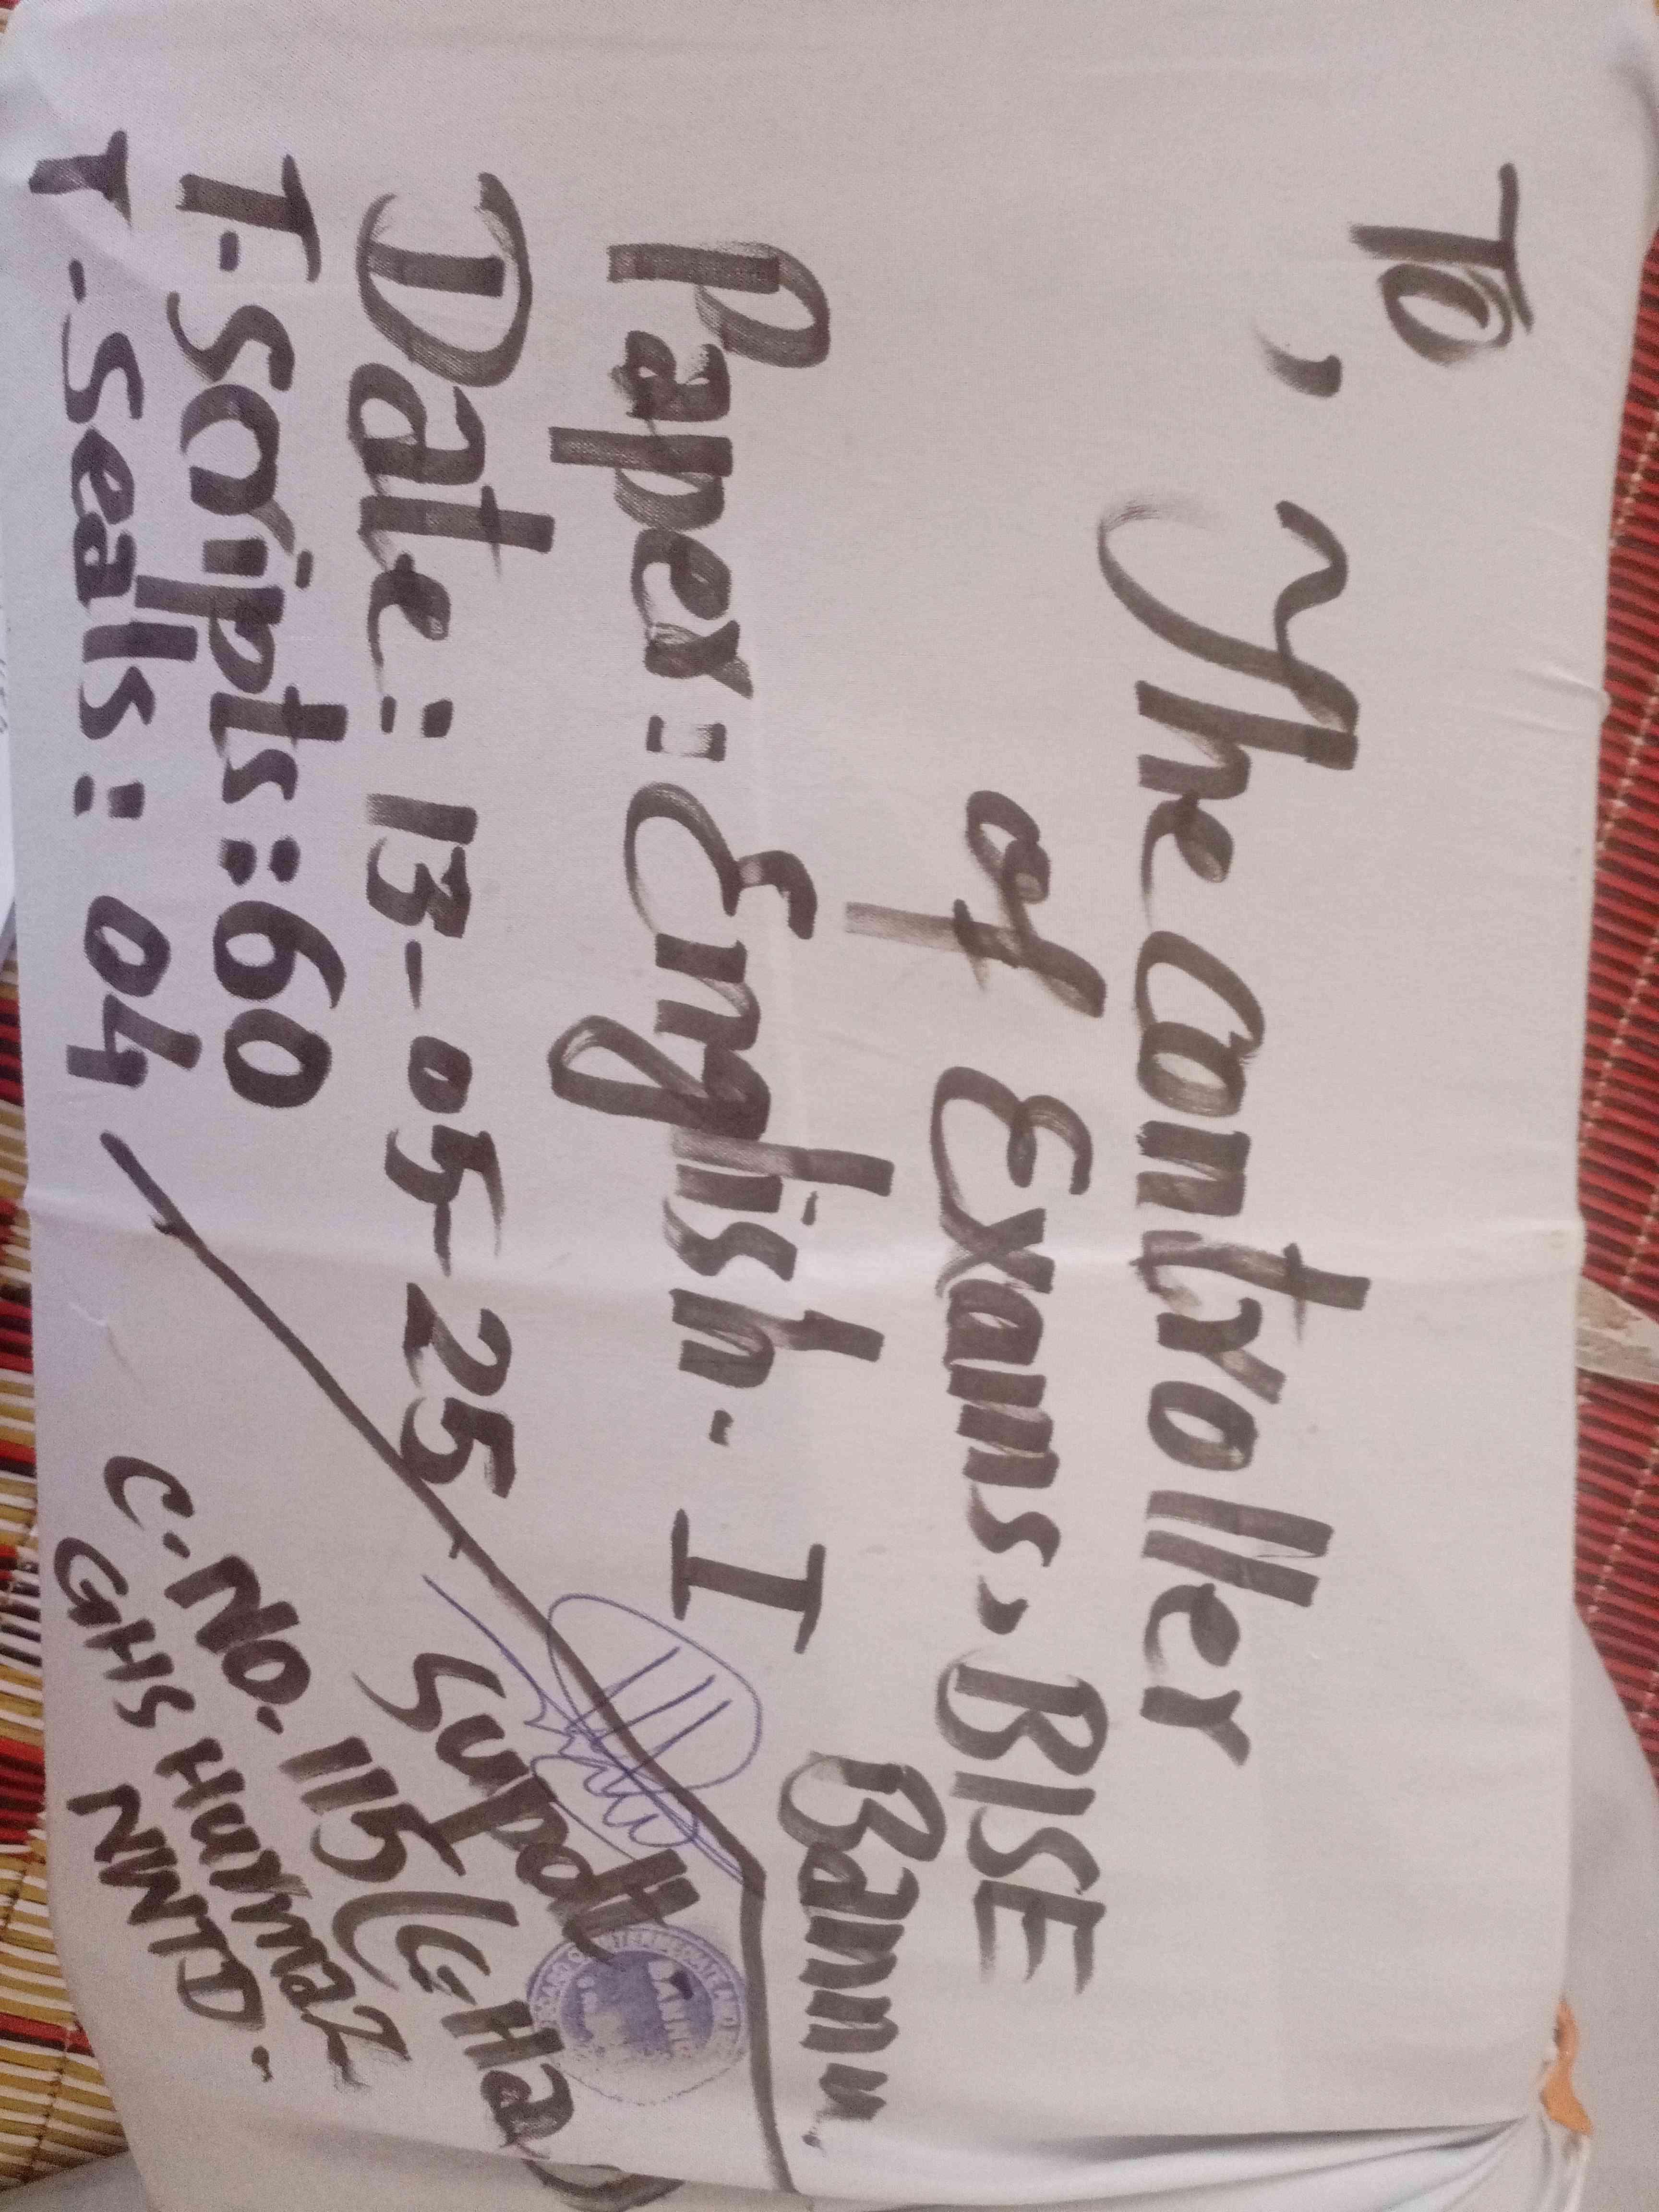 To,
The Controller
of Exams, BISE
Bannu.
Paper: English - I
Date: 13-05-25
T-Scripts: 60
T-Seals: 04
Supdtt
C.No. 115 (GHa)
GHS Hurmaz
NWTD.
BANNU